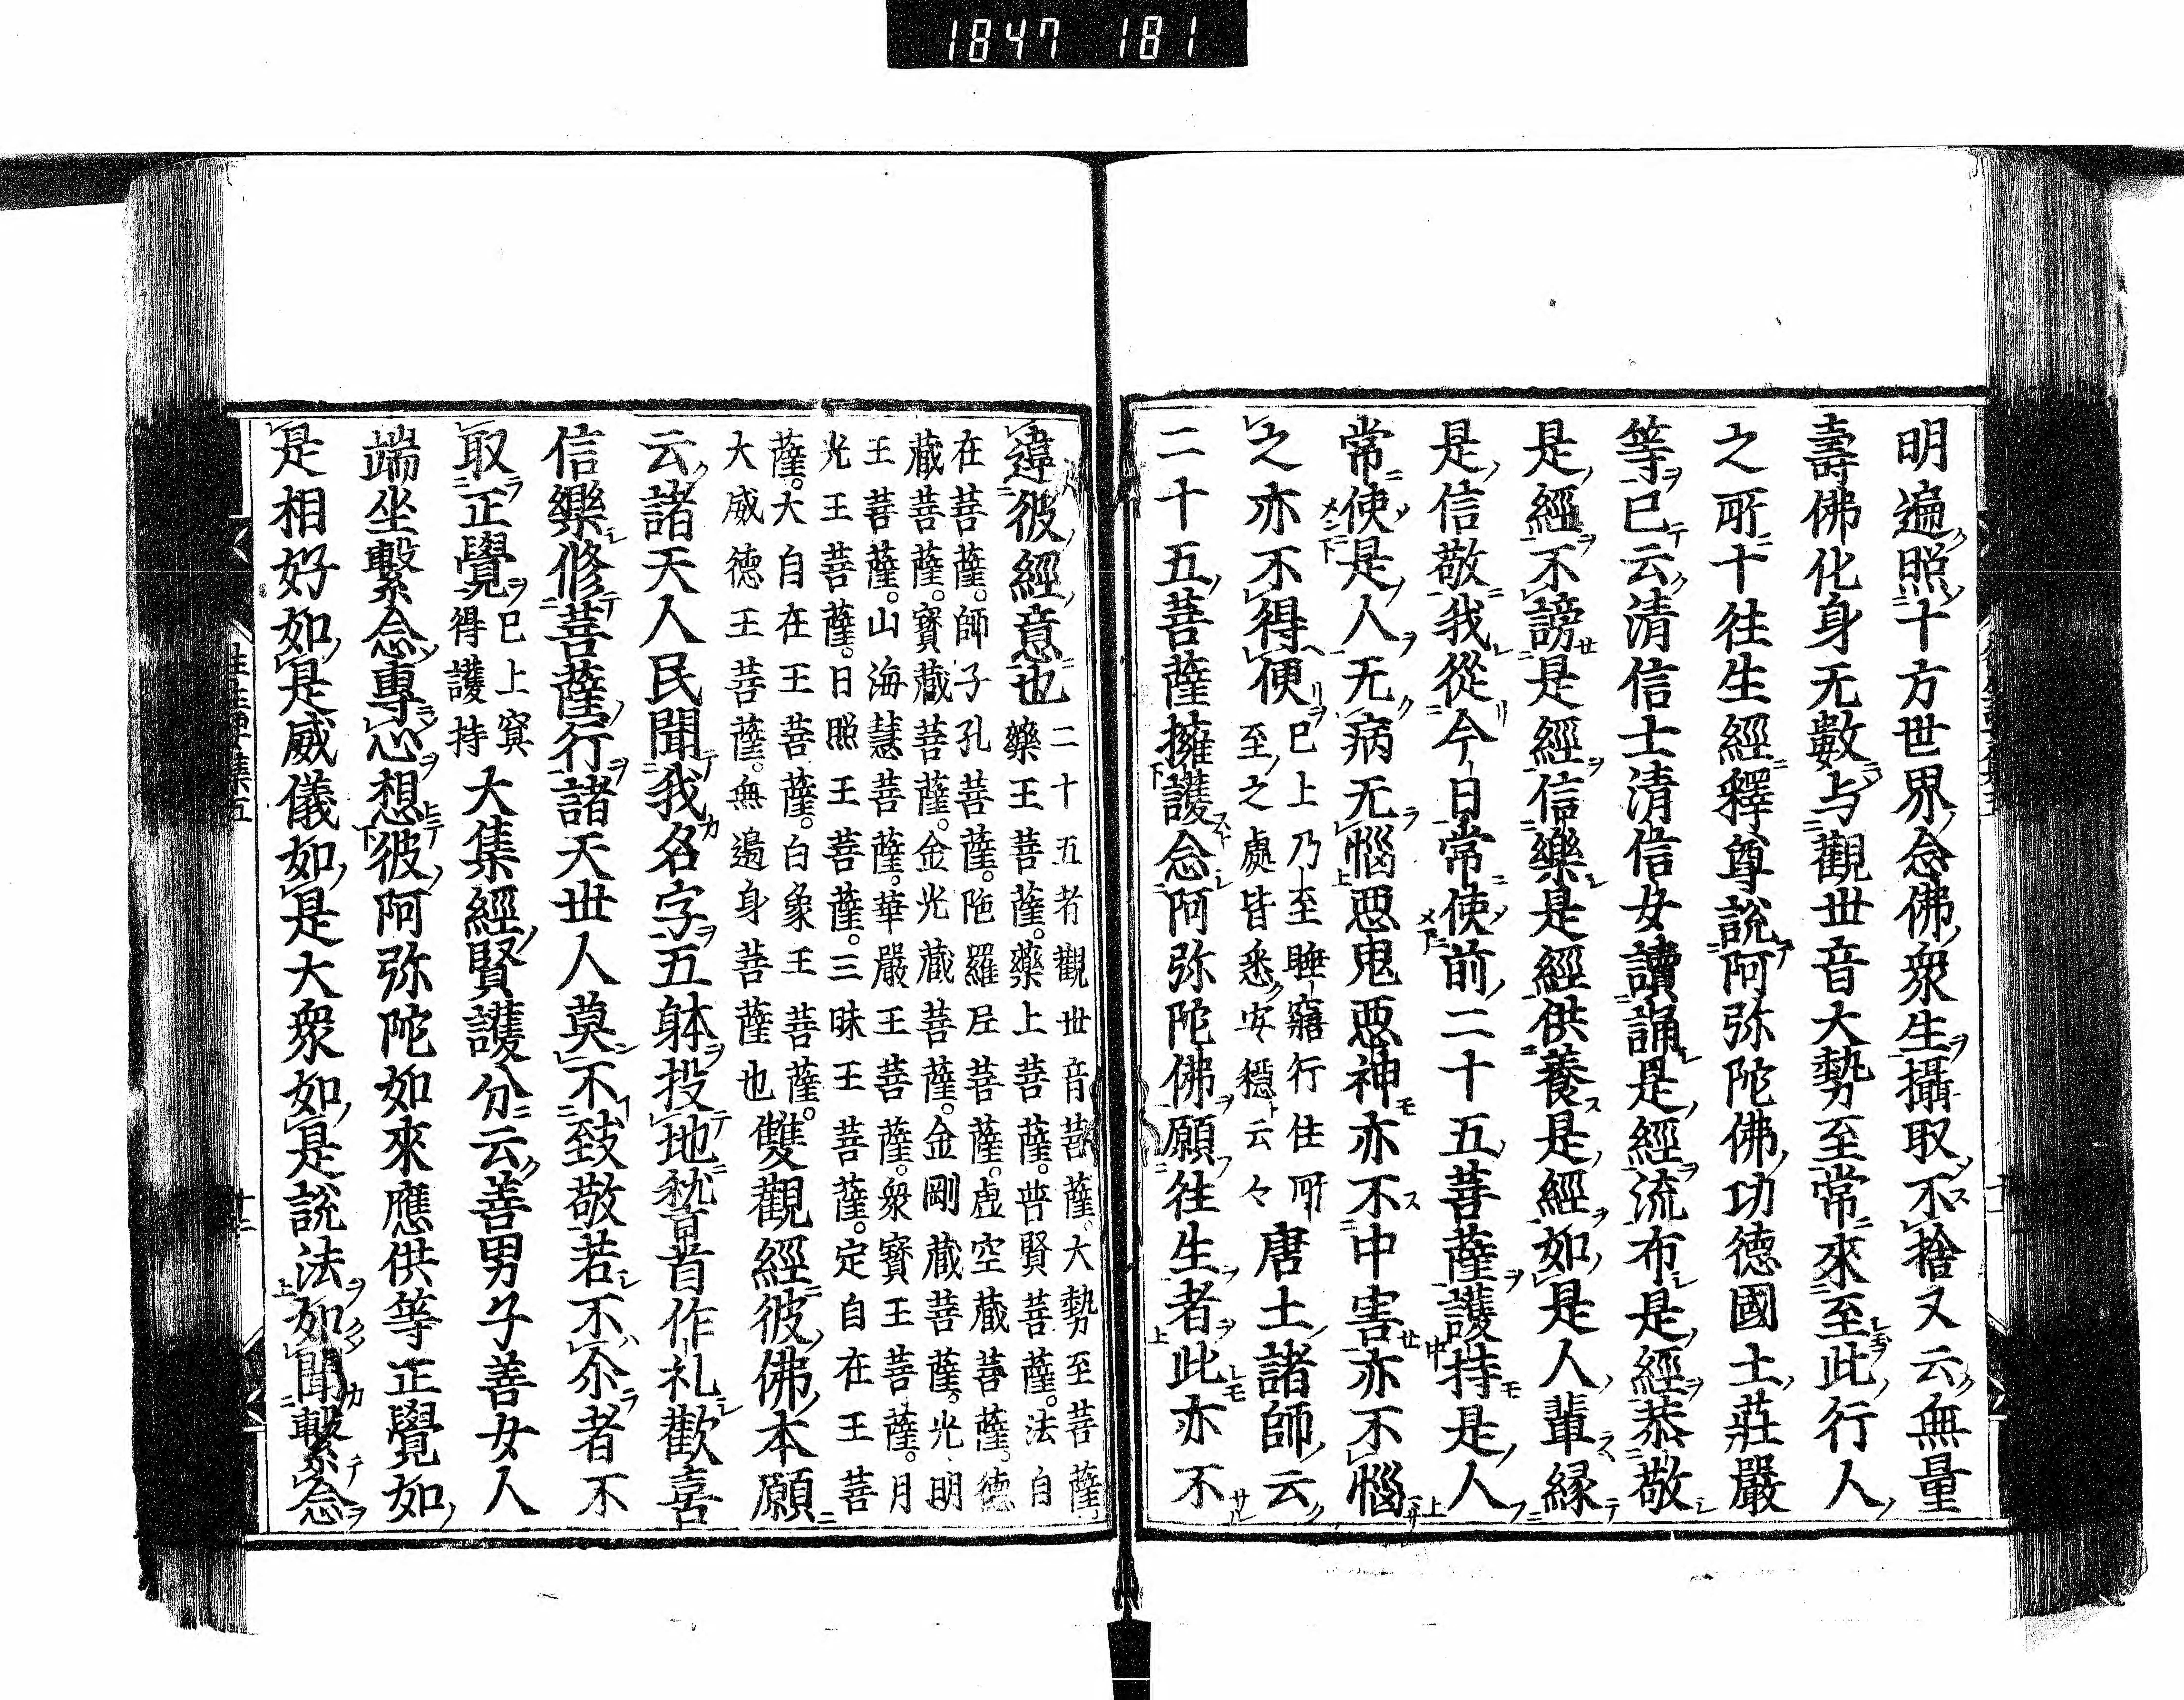 1847 181
明遍照十方世界念佛衆生攝取不捨又云無量
壽佛化身无數与觀世音大勢至常來至此行人
之所十往生經釋尊說阿弥陀佛功德國土莊嚴
等已云清信士清信女讀誦是經流布是經恭敬
是經不謗是經信樂是經供養是經如是人輩緣
是信敬我從今日常使前二十五菩薩護持是人
常使是人无病无惱惡鬼惡神亦不中害亦不惱
之亦不得便
已上乃至睡寤行住所
至之處皆悉安穩云々
唐土諸師云
二十五菩薩擁護念阿弥陀佛願往生者此亦不
違彼經意也
二十五者觀世音菩薩。大勢至菩薩。
藥王菩薩。藥上菩薩。普賢菩薩。法自
在菩薩。師子孔菩薩。陁羅尼菩薩。虛空藏菩薩。德
藏菩薩。寶藏菩薩。金光藏菩薩。金剛藏菩薩。光明
王菩薩。山海慧菩薩。華嚴王菩薩。衆寶王菩薩。月
光王菩薩。日照王菩薩。三昧王菩薩。定自在王菩
薩。大自在王菩薩。白象王菩薩。
大威德王菩薩。無邊身菩薩也
雙觀經彼佛本願
云諸天人民聞我名字五躰投地稽首作礼歡喜
信樂修菩薩行諸天世人莫不致敬若不尒者不
取正覺
已上冥
得護持
大集經賢護分云善男子善女人
端坐繫念專心想彼阿弥陀如來應供等正覺如
是相好如是威儀如是大衆如是說法如聞繫念